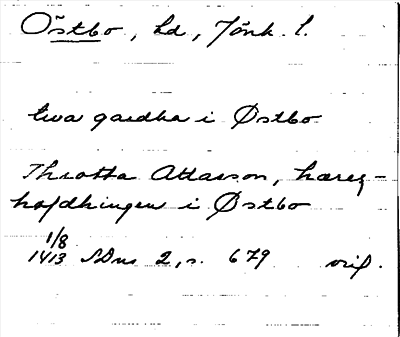 Östbo, hd, Jönk. l.
twa gardha i Østbo
Throtta Attarson, hærez-
høfdhingen i Østbo
1/8
1413 SDns 2, s. 679 orig.